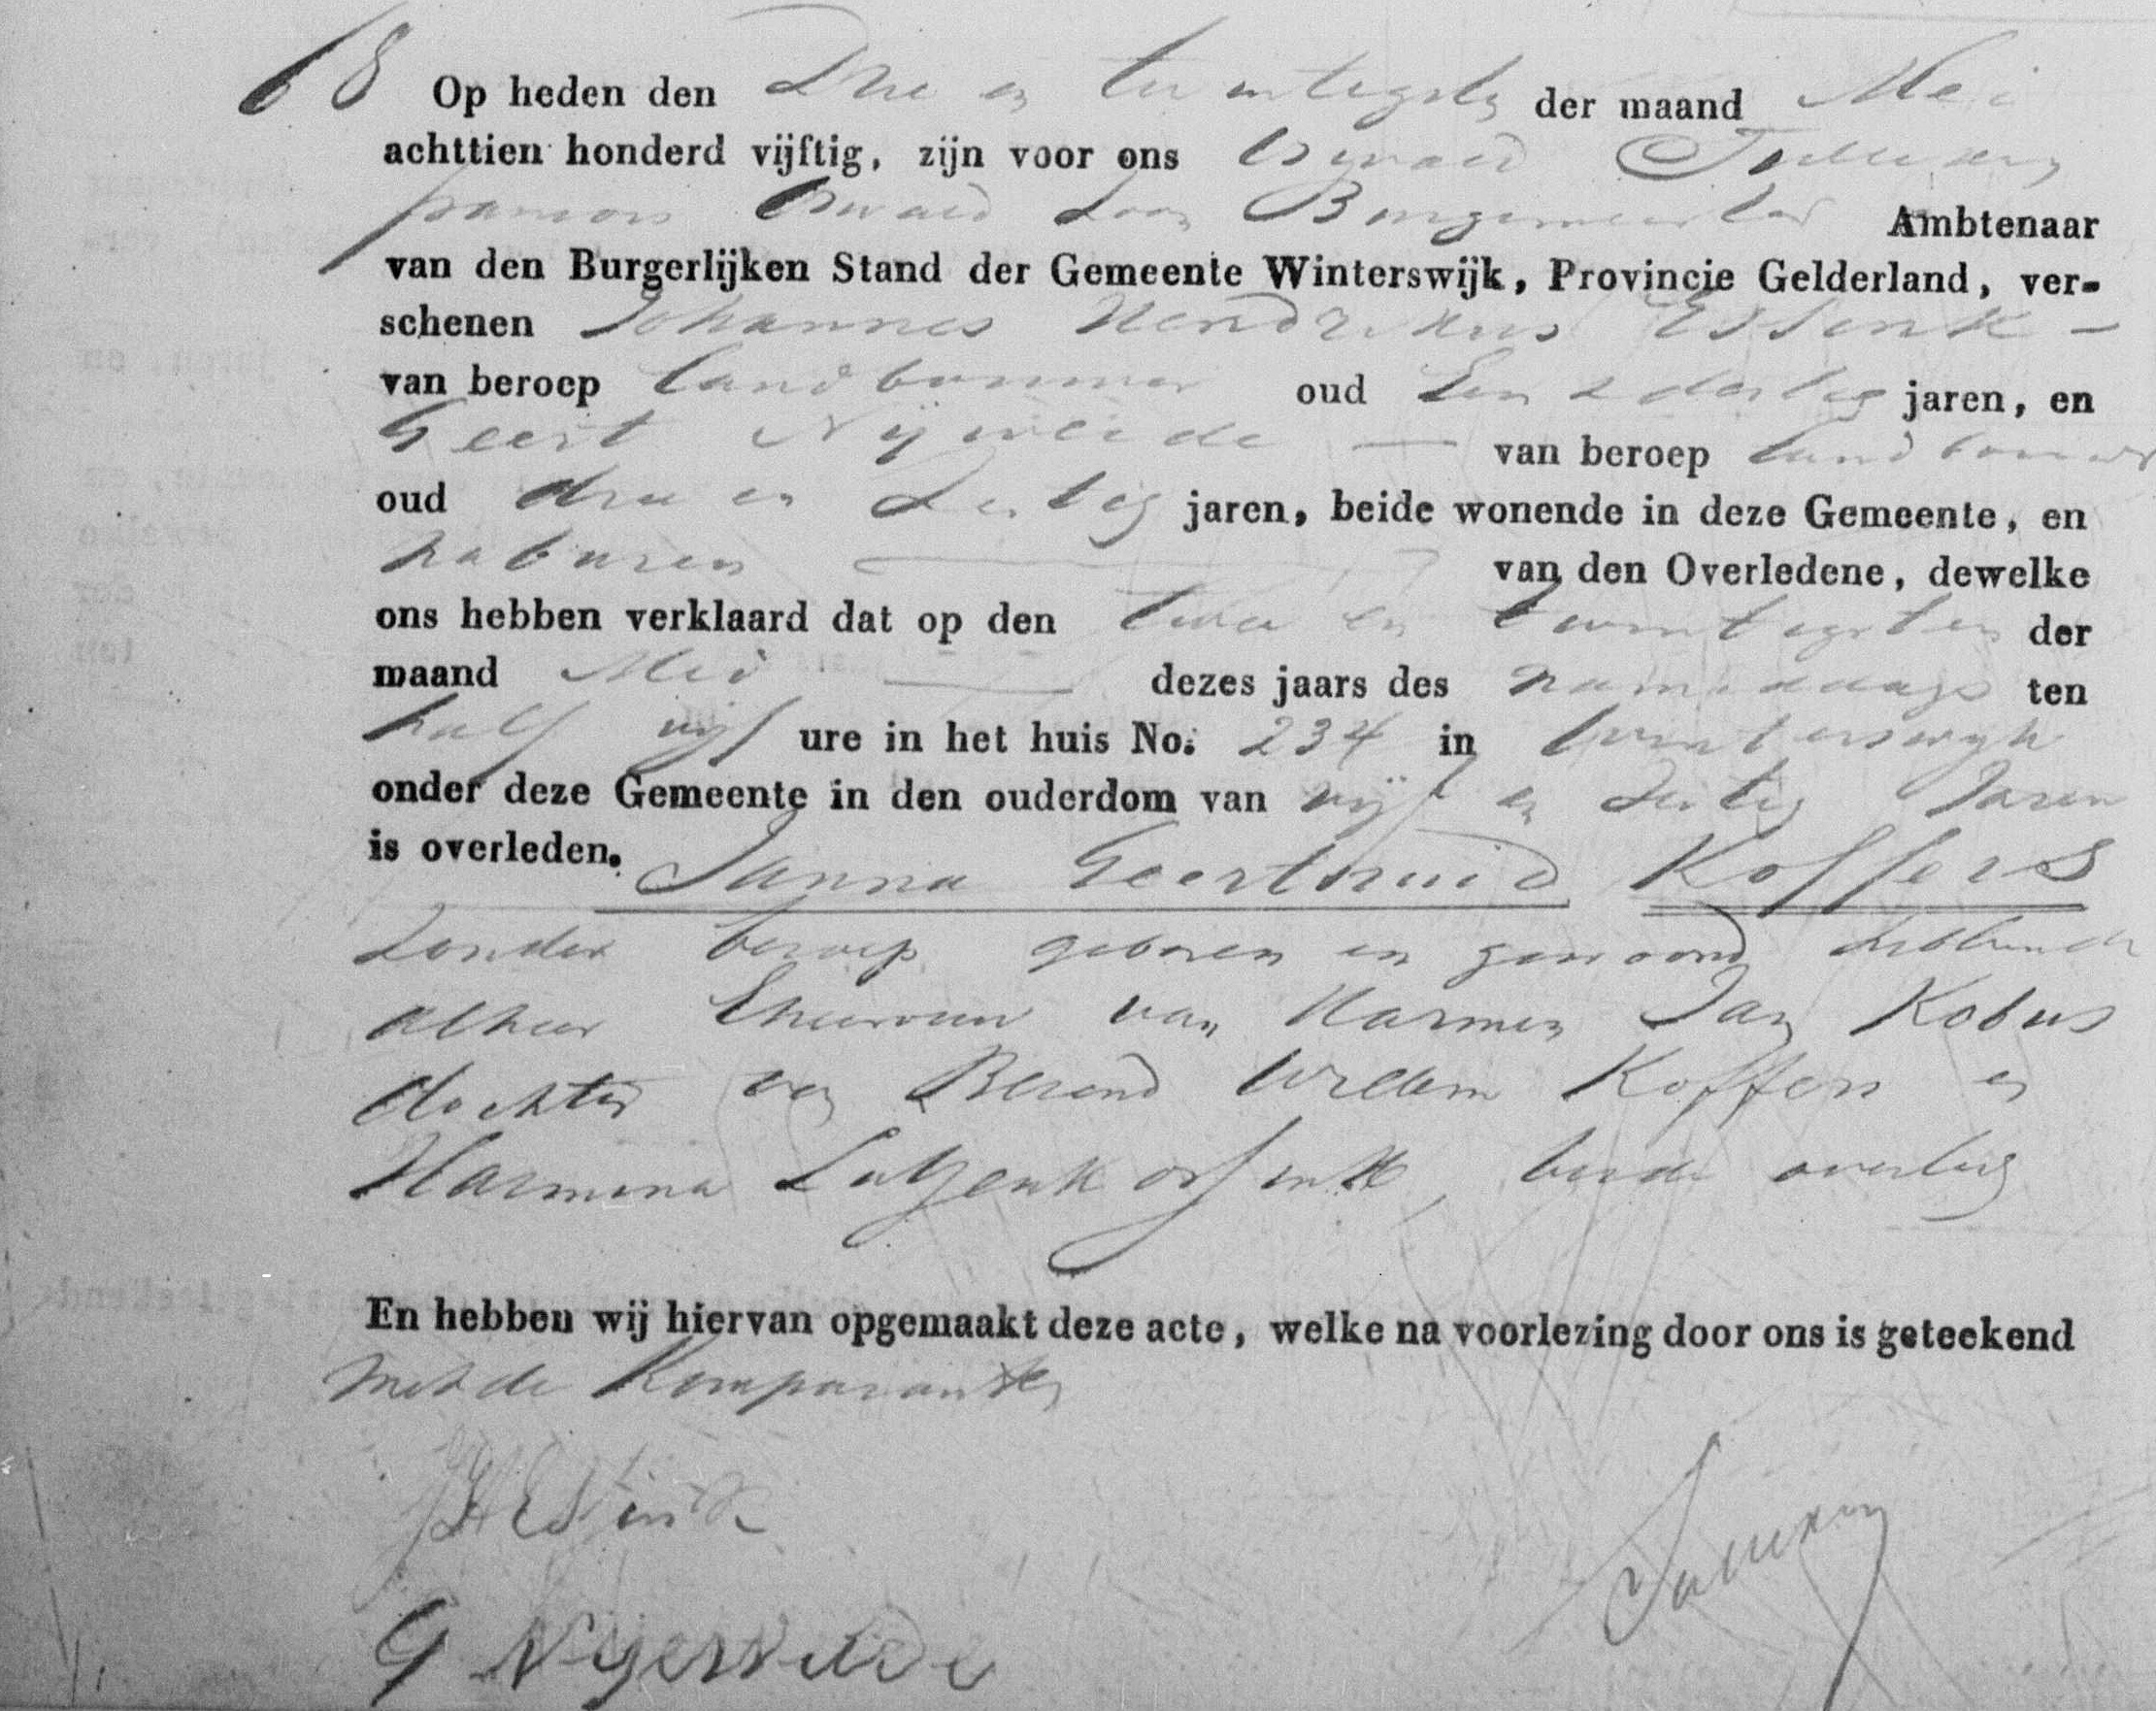 68 Op heden den Drie en twintigsten der maand Mei
achttien honderd vijftig, zijn voor ons
Burgemeester Ambtenaar
van den Burgerlijken Stand der Gemeente Winterswijk, Provincie Gelderland, ver-
schenen Johannes Hendrikus Essink -
van beroep landbouwer oud Een & dertig jaren, en
Geert Nijweide — van beroep landbouwer
oud drie en dertig jaren, beide wonende in deze Gemeente, en
naburen — van den Overledene, dewelke
ons hebben verklaard dat op den twee en twintigsten der
maand Mei — dezes jaars des namiddags ten
half vijf ure in het huis No. 234 in Winterswijk
onder deze Gemeente in den ouderdom van vijf en dertig Jaren
is overleden. Janna Geertruid Koffers
zonder beroep geboren en gewoond hebbende
alhier Ehevrouw van Harmen Jan Kobus
dochter van Berend Willem Koffers en
Harmina beide overleden
En hebben wij hiervan opgemaakt deze acte, welke na voorlezing door ons is geteekend
met de Komparanten
JHEssink
G Nijerweide